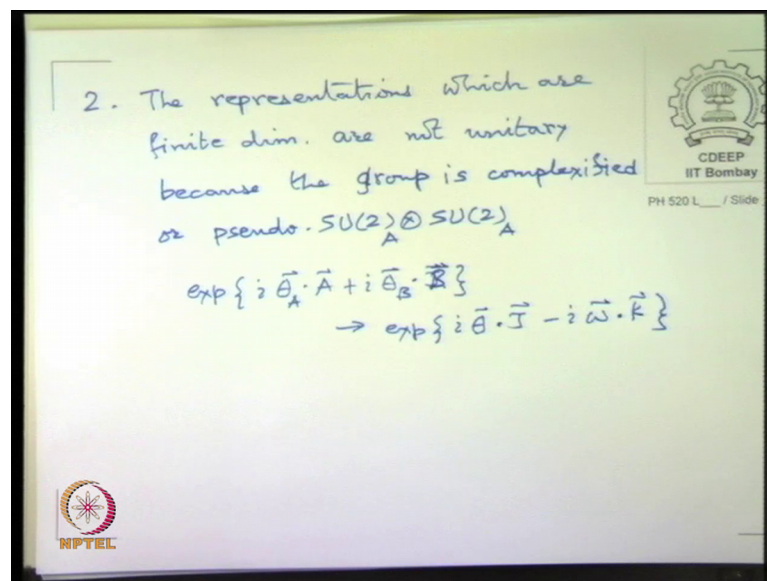 2. The representations which are
finite dim. are not unitary
because the group is complexified
or pseudo. SU(2)_A ⊗ SU(2)_A
exp{ i θ⃗_A · A⃗ + i θ⃗_B · B⃗ }
→ exp{ i θ⃗ · J⃗ − i ω⃗ · K⃗ }
CDEEP
IIT Bombay
PH 520 L___ / Slide
NPTEL